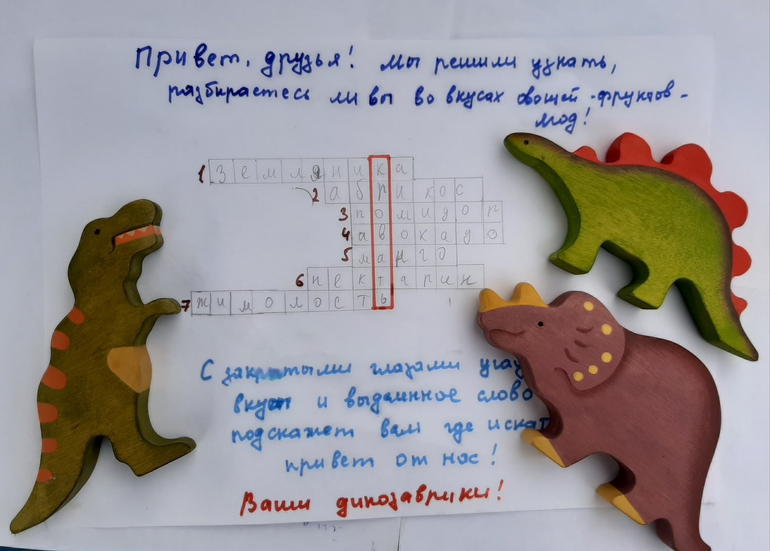 Привет, друзья! Мы решили узнать,
разбираетесь ли вы во вкусах овощей-фруктов-
ягод!
1 земляника
2 абрикос
3 помидор
4 авокадо
5 манго
6 нектарин
7 жимолость
С закрытыми глазами
вкус и выделенное слово
подскажет вам где искать
привет от нас!
Ваши динозаврики!